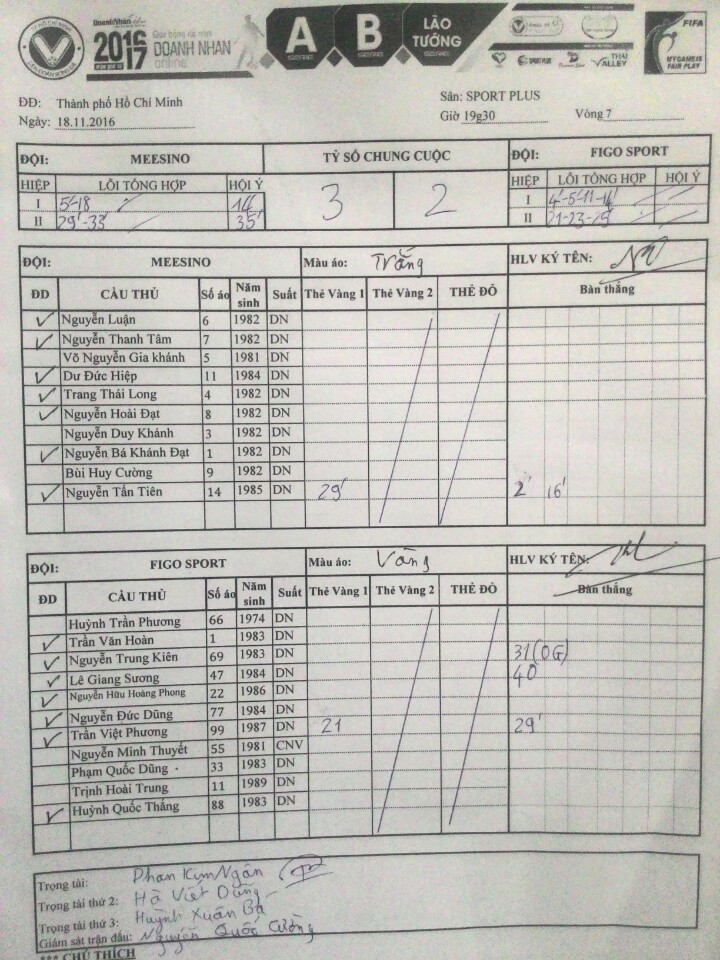 DoanhNhan
2016 2017 Giải bóng đá mini DOANH NHAN online
A B LÃO TƯỚNG
SPORT PLUS THAI VALLEY
FIFA
MY GAME IS FAIR PLAY
ĐĐ: Thành phố Hồ Chí Minh Sân: SPORT PLUS
Ngày: 18.11.2016 Giờ 19g30 Vòng 7
ĐỘI: MEESINO TỶ SỐ CHUNG CUỘC ĐỘI: FIGO SPORT
HIỆP LỖI TỔNG HỢP HỘI Ý 3 2 HIỆP LỖI TỔNG HỢP HỘI Ý
I 5'-18 14' I 4'-5'-11-14'
II 29'-33' 35' II 21-23-25'
ĐỘI: MEESINO Màu áo: Trắng HLV KÝ TÊN:
ĐD CẦU THỦ Số áo Năm sinh Suất Thẻ Vàng 1 Thẻ Vàng 2 THẺ ĐỎ Bàn thắng
✓ Nguyễn Luận 6 1982 DN
✓ Nguyễn Thanh Tâm 7 1982 DN
Võ Nguyễn Gia khánh 5 1981 DN
✓ Dư Đức Hiệp 11 1984 DN
✓ Trang Thái Long 4 1982 DN
✓ Nguyễn Hoài Đạt 8 1982 DN
Nguyễn Duy Khánh 3 1982 DN
✓ Nguyễn Bá Khánh Đạt 1 1982 DN
Bùi Huy Cường 9 1982 DN
✓ Nguyễn Tấn Tiên 14 1985 DN 29' 2' 16'
ĐỘI: FIGO SPORT Màu áo: Vàng HLV KÝ TÊN:
ĐD CẦU THỦ Số áo Năm sinh Suất Thẻ Vàng 1 Thẻ Vàng 2 THẺ ĐỎ Bàn thắng
Huỳnh Trần Phương 66 1974 DN
✓ Trần Văn Hoàn 1 1983 DN
✓ Nguyễn Trung Kiên 69 1983 DN 31(OG)
✓ Lê Giang Sương 47 1984 DN 40
✓ Nguyễn Hữu Hoàng Phong 22 1986 DN
✓ Nguyễn Đức Dũng 77 1984 DN
✓ Trần Việt Phương 99 1987 DN 21 29'
Nguyễn Minh Thuyết 55 1981 CNV
Phạm Quốc Dũng 33 1983 DN
Trịnh Hoài Trung 11 1989 DN
✓ Huỳnh Quốc Thắng 88 1983 DN
Trọng tài: Phan Kym Ngân
Trọng tài thứ 2: Hà Việt Dũng
Trọng tài thứ 3: Huỳnh Xuân Ba
Giám sát trận đấu: Nguyễn Quốc Cường
*** CHÚ THÍCH